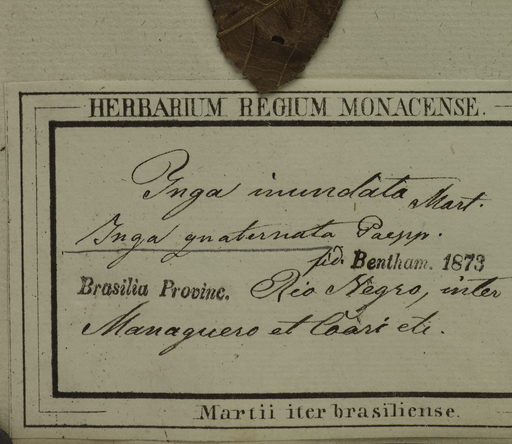 HERBARIUM REGIUM MONACENSE.
Inga inundata Mart.
Inga quaternata Poepp.
fid. Bentham. 1873
Brasilia Provinc. Rio Negro, inter
Managuero et Coari etc.
Martii iter brasiliense.